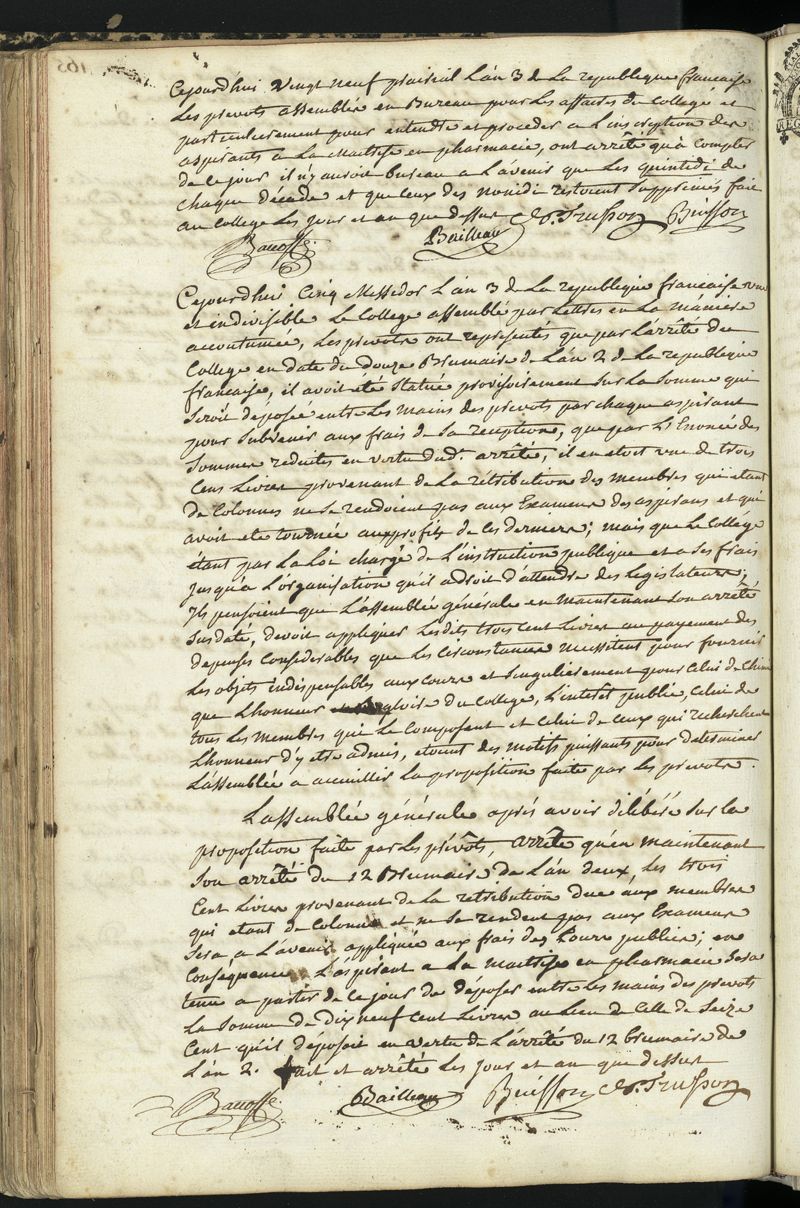 Cejourdhui vingt neuf prairial L'an 3 de La republique francaise
Les prevots assemblés en Bureau pour Les affaires du College et
particulierement pour entendre et proceder a L'inscription des
aspirants a La Maitrise en pharmacie, ont arrêté qu'a compter
de ce jour il n'y auroit bureau a L'avenir que Les quintidi de
chaque décade et que Ceux des nonidi restoient supprimés fait
au College Les jour et an que dessus
Trusson Buisson
Bacoffe Bailleau
Cejourdhui Cinq Messidor L'an 3 de La republique francaise une
et indivisible Le College assemblé par Lettres en La maniere
accoutumée, Les prevots ont representés que par L'arrêté du
College en date du Douze Brumaire de L'an 2 de La republique
francaise, il avoit été statué provisoirement sur La somme qui
seroit deposée entre Les mains des prevots par chaque aspirant
pour subvenir aux frais de sa reception, que par L'Enoncé des
sommes reduites en vertu dudt. arrêté, il en etoit une de trois
Cens Livres provenant de La rétribution des membres qui etant
de Colonnes ne se rendoient pas aux Examens des aspirans et qui
avoit eté tournée au profit de ces derniers; mais que Le Collége
étant par La Loi chargé de L'instruction publique et a ses frais
jusqu'a L'organisation qu'il a droit d'attendre des Legislateurs;
Ils pensoient que L'assemblée générale en maintenant son arrêté
susdaté, devoit appliquer Lesdits trois cent Livres au payement des
depenses Considerables que Les Circonstances necessitent pour fournir
Les objets indispensables aux cours et singulierement pour Celui de Chimie
que L'honneur gloire du College, L'interet public, Celui de
tous Les membres qui Le Composent et Celui de Ceux qui recherchent
L'honneur d'y etre admis, etoient des motifs puissants pour determiner
L'assemblée a accueillir La proposition faite par Les prevots.
L'assemblée générale aprés avoir délibéré sur la
proposition faite par Les prévôts, arrête qu'en maintenant
son arrêté du 12 Brumaire de L'an deux, Les trois
Cent Livres provenant de La retribution due aux membres
qui etant de Colonne et ne se rendent pas aux Examens
sera a L'avenir appliquée aux frais des Cours publics; en
Consequence L'aspirant a La maitrise en pharmacie sera
tenu a partir de ce jour de deposer entre Les mains des prevots
La somme de dix neuf Cent Livres au Lieu de Celle de Seize
Cent qu'il déposoit en vertu de L'arrêté du 12 brumaire de
L'an 2. fait et arrêté Les jour et an que dessus
Bacoffe Bailleau Buisson Trusson